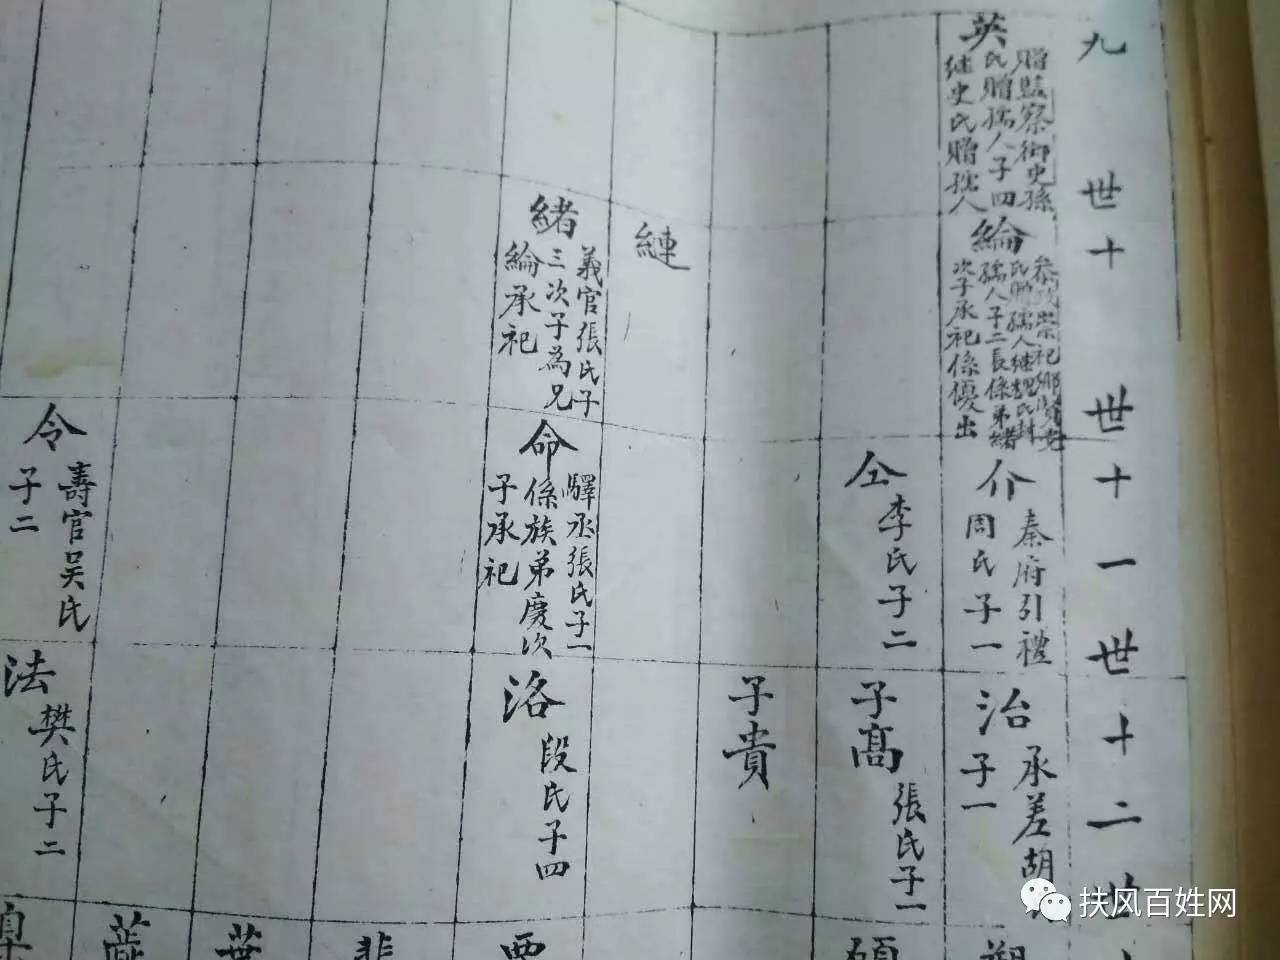 九世
十世
十一世
十二世
英
贈監察御史孫
氏贈孺人子四
继史氏贈孺人
綸
参政崇祀鄉賢党
氏贈孺人继魏氏封
孺人子二長係弟緒
次子承祀係優出
介
秦府引禮
周氏子一
治
承差胡
子一
仝
李氏子二
子高
張氏子一
子貴
縺
緒
義官張氏子
三次子為兄
綸承祀
命
驛丞張氏子一
係族弟慶次
子承祀
洛
段氏子四
令
壽官吴氏
子二
法
樊氏子二
扶风百姓网